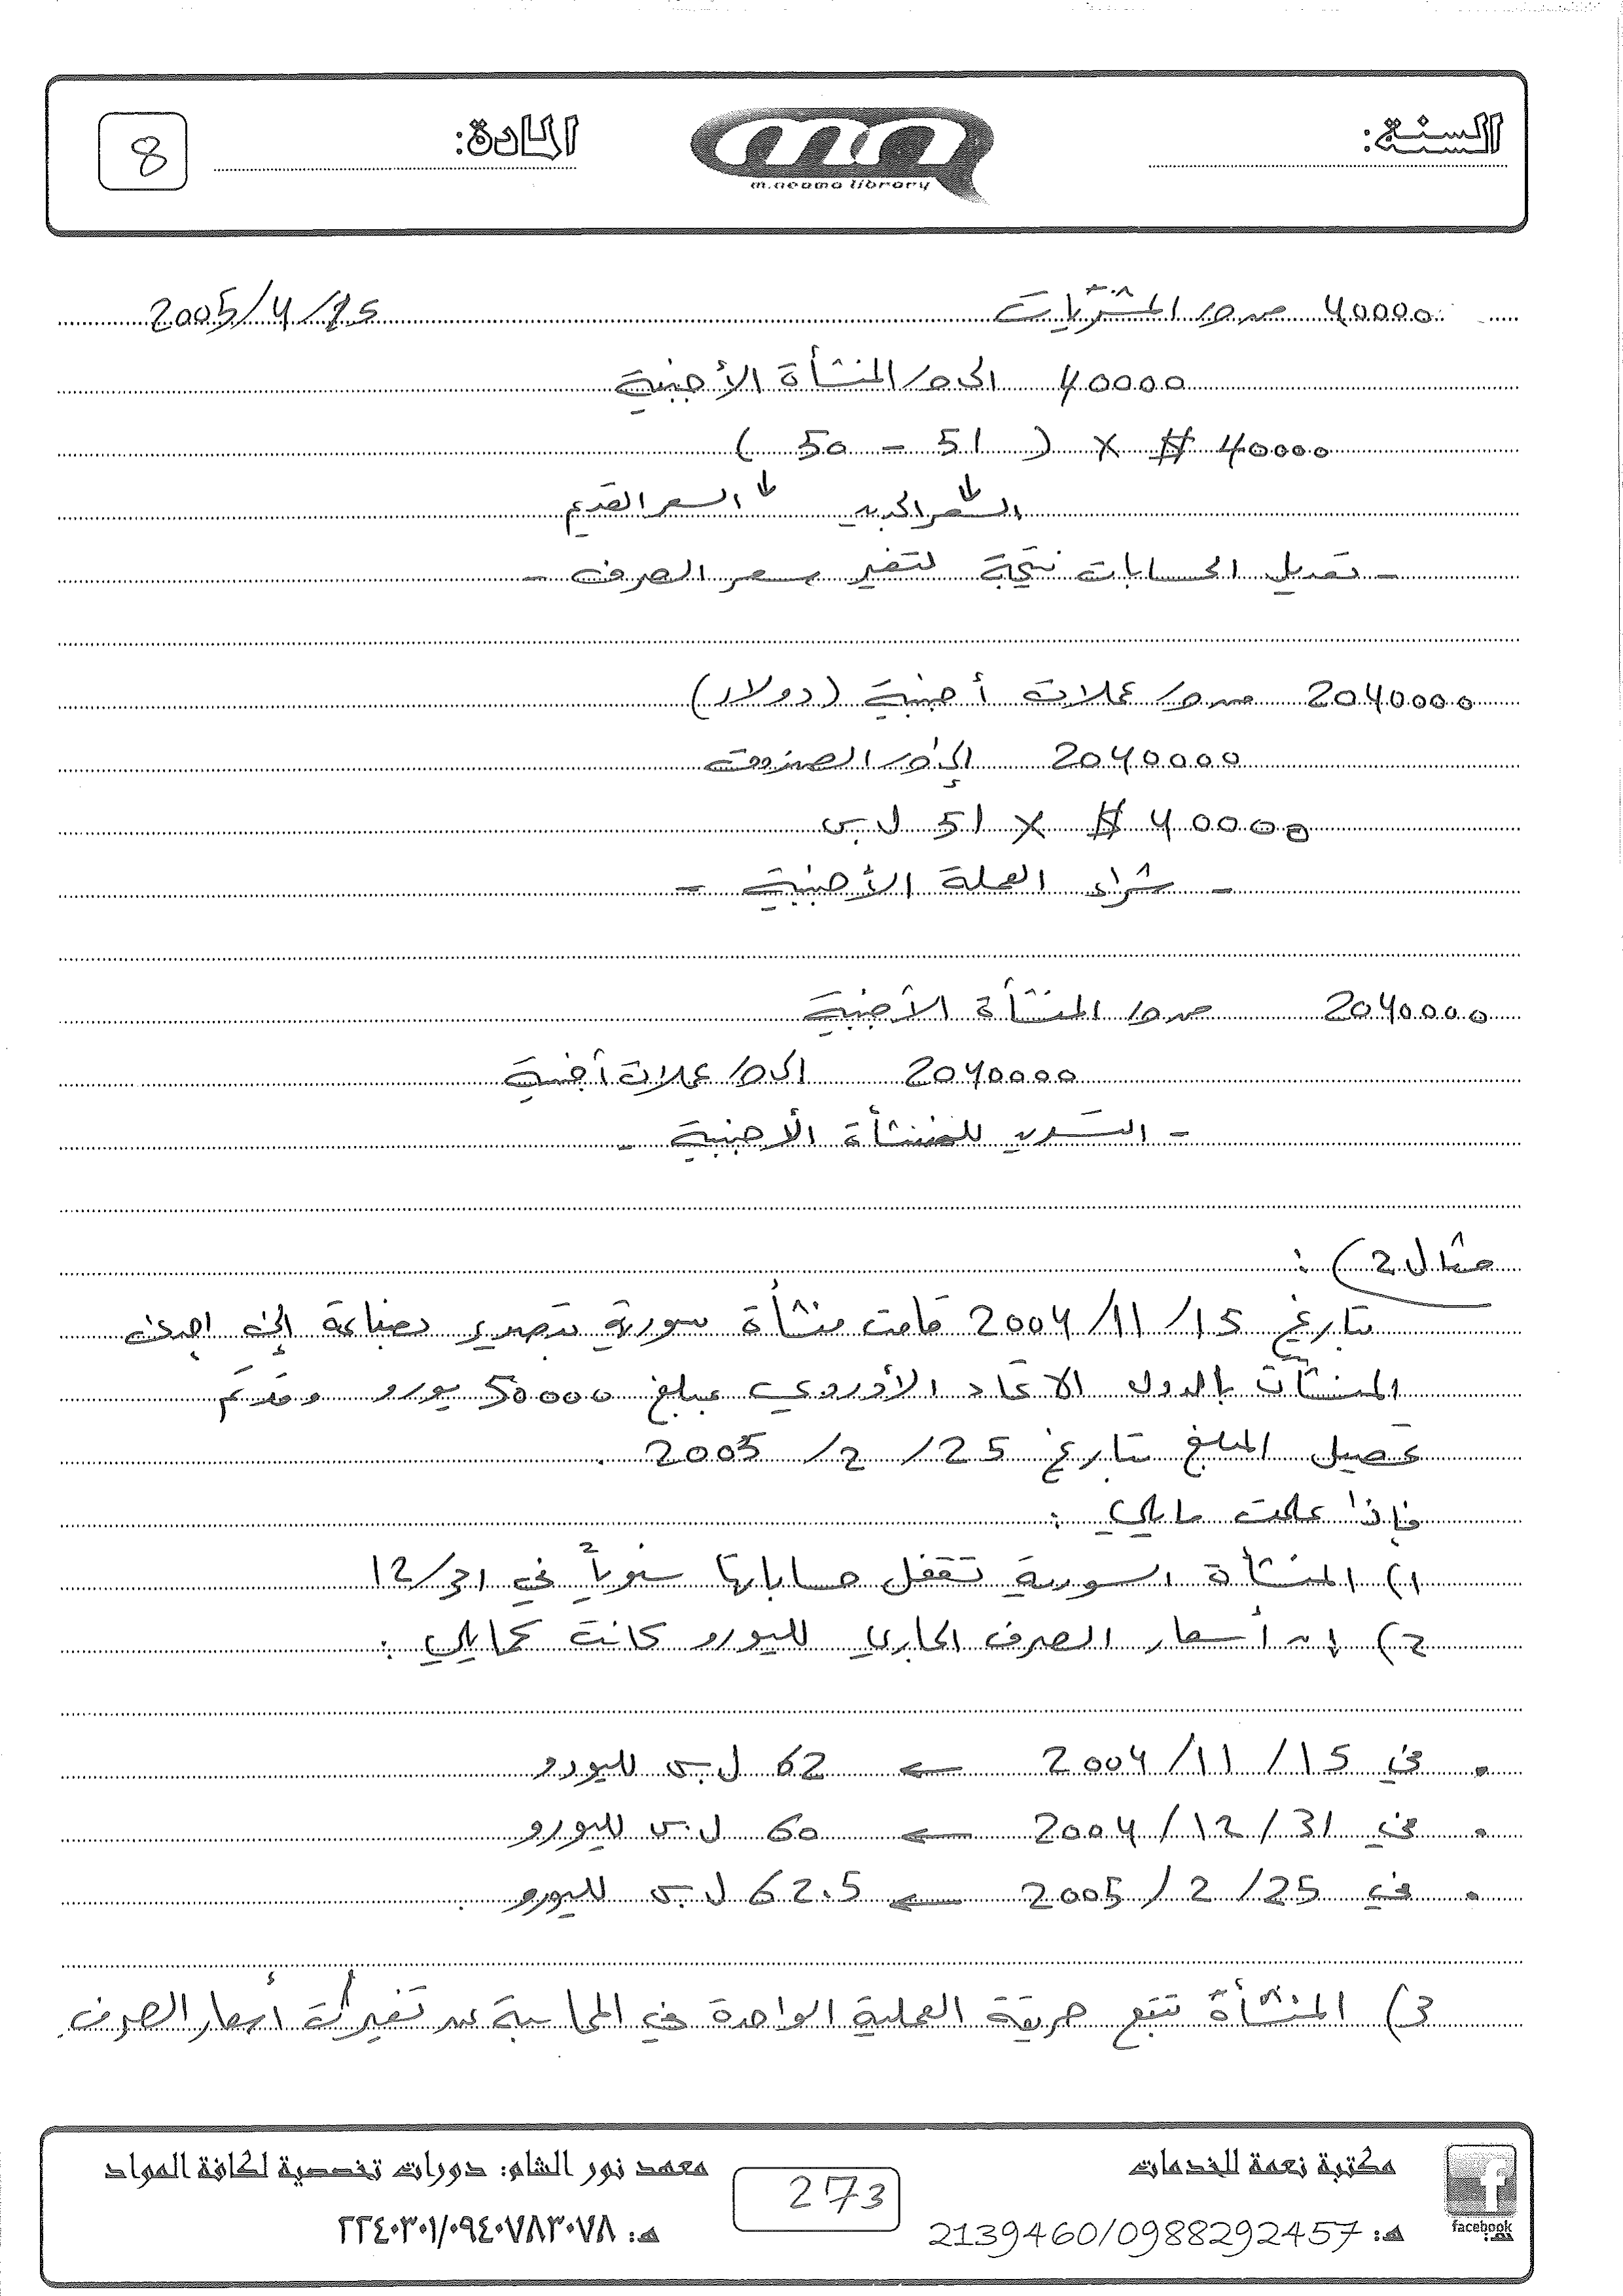 السنة:
m.neama library
المادة:
8
40000 من حـ/ المشتريات 2005/4/15
40000 الى حـ/ المنشأة الأجنبية
40000 $ × (51 - 50)
السعر الجديد السعر القديم
- تعديل الحسابات نتيجة لتغير سعر الصرف -
2040000 من حـ/ عملات أجنبية (دولار)
2040000 إلى حـ/ الصندوق
40000 $ × 51 ل.س
- شراء العملة الأجنبية -
2040000 من حـ/ المنشأة الأجنبية
2040000 الى حـ/ عملات أجنبية
- التسديد للمنشأة الأجنبية -
مثال 2) :
بتاريخ 15/11/2004 قامت منشأة سورية بتصدير بضاعة إلى احدى
المنشآت بالدول الاتحاد الأوروبي بمبلغ 50000 يورو وقد تم
تحصيل المبلغ بتاريخ 25/2/2005 .
فإذا علمت مايلي :
1) المنشأة السورية تقفل حساباتها سنوياً في 31/12
2) إن أسعار الصرف الجاري لليورو كانت كمايلي :
• في 15/11/2004 ← 62 ل.س لليورو
• في 31/12/2004 ← 60 ل.س لليورو
• في 25/2/2005 ← 62.5 ل.س لليورو .
3) المنشأة تتبع طريقة العملية الواحدة في المحاسبة عن تغيرات أسعار الصرف.
facebook
مكتبة نعمة للخدمات
هـ: 2139460/0988292457
273
معهد نور الشام: دورات تخصصية لكافة المواد
هـ: ٢٢٤٠٣٠١/٠٩٤٠٧٨٣٠٧٨